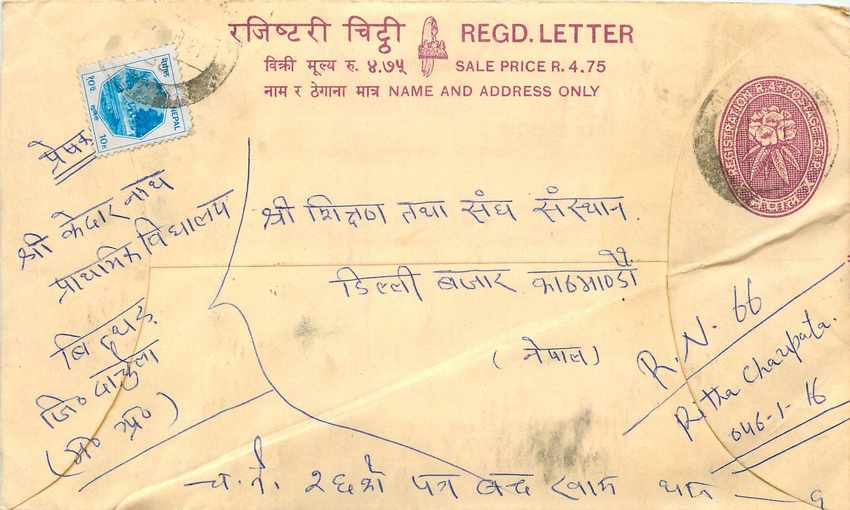 रजिष्टरी चिट्ठी REGD. LETTER
विक्री मूल्य रु. ४.७५ SALE PRICE R. 4.75
नाम र ठेगाना मात्र NAME AND ADDRESS ONLY
१०पै. NEPAL
10P.
REGISTRATION & POSTAGE
नेपाल
प्रेषक
श्री केदार नाथ
प्राथमिक विद्यालय
जि० दार्चुला
श्री शिक्षण तथा संघ संस्थान.
डिल्ली बजार काठमाण्डौ ११
(नेपाल)
R.N. 66
Ritha Chaupata.
046-1-16
च.नं. २६को पत्र बन्द खाम थान — १